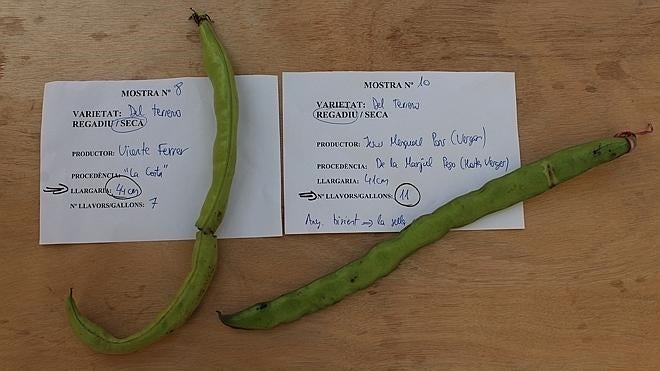 MOSTRA Nº 8
VARIETAT: Del terreno
REGADIU / SECA
PRODUCTOR: Vicente Ferrer
PROCEDÈNCIA: "La Costa"
LLARGARIA: 44 cm
Nº LLAVORS/GALLONS: 7
MOSTRA Nº 10
VARIETAT: Del Terreno
REGADIU / SECA
PRODUCTOR:
PROCEDÈNCIA: De la Marjal
LLARGARIA: 41 cm
Nº LLAVORS/GALLONS: 11
la